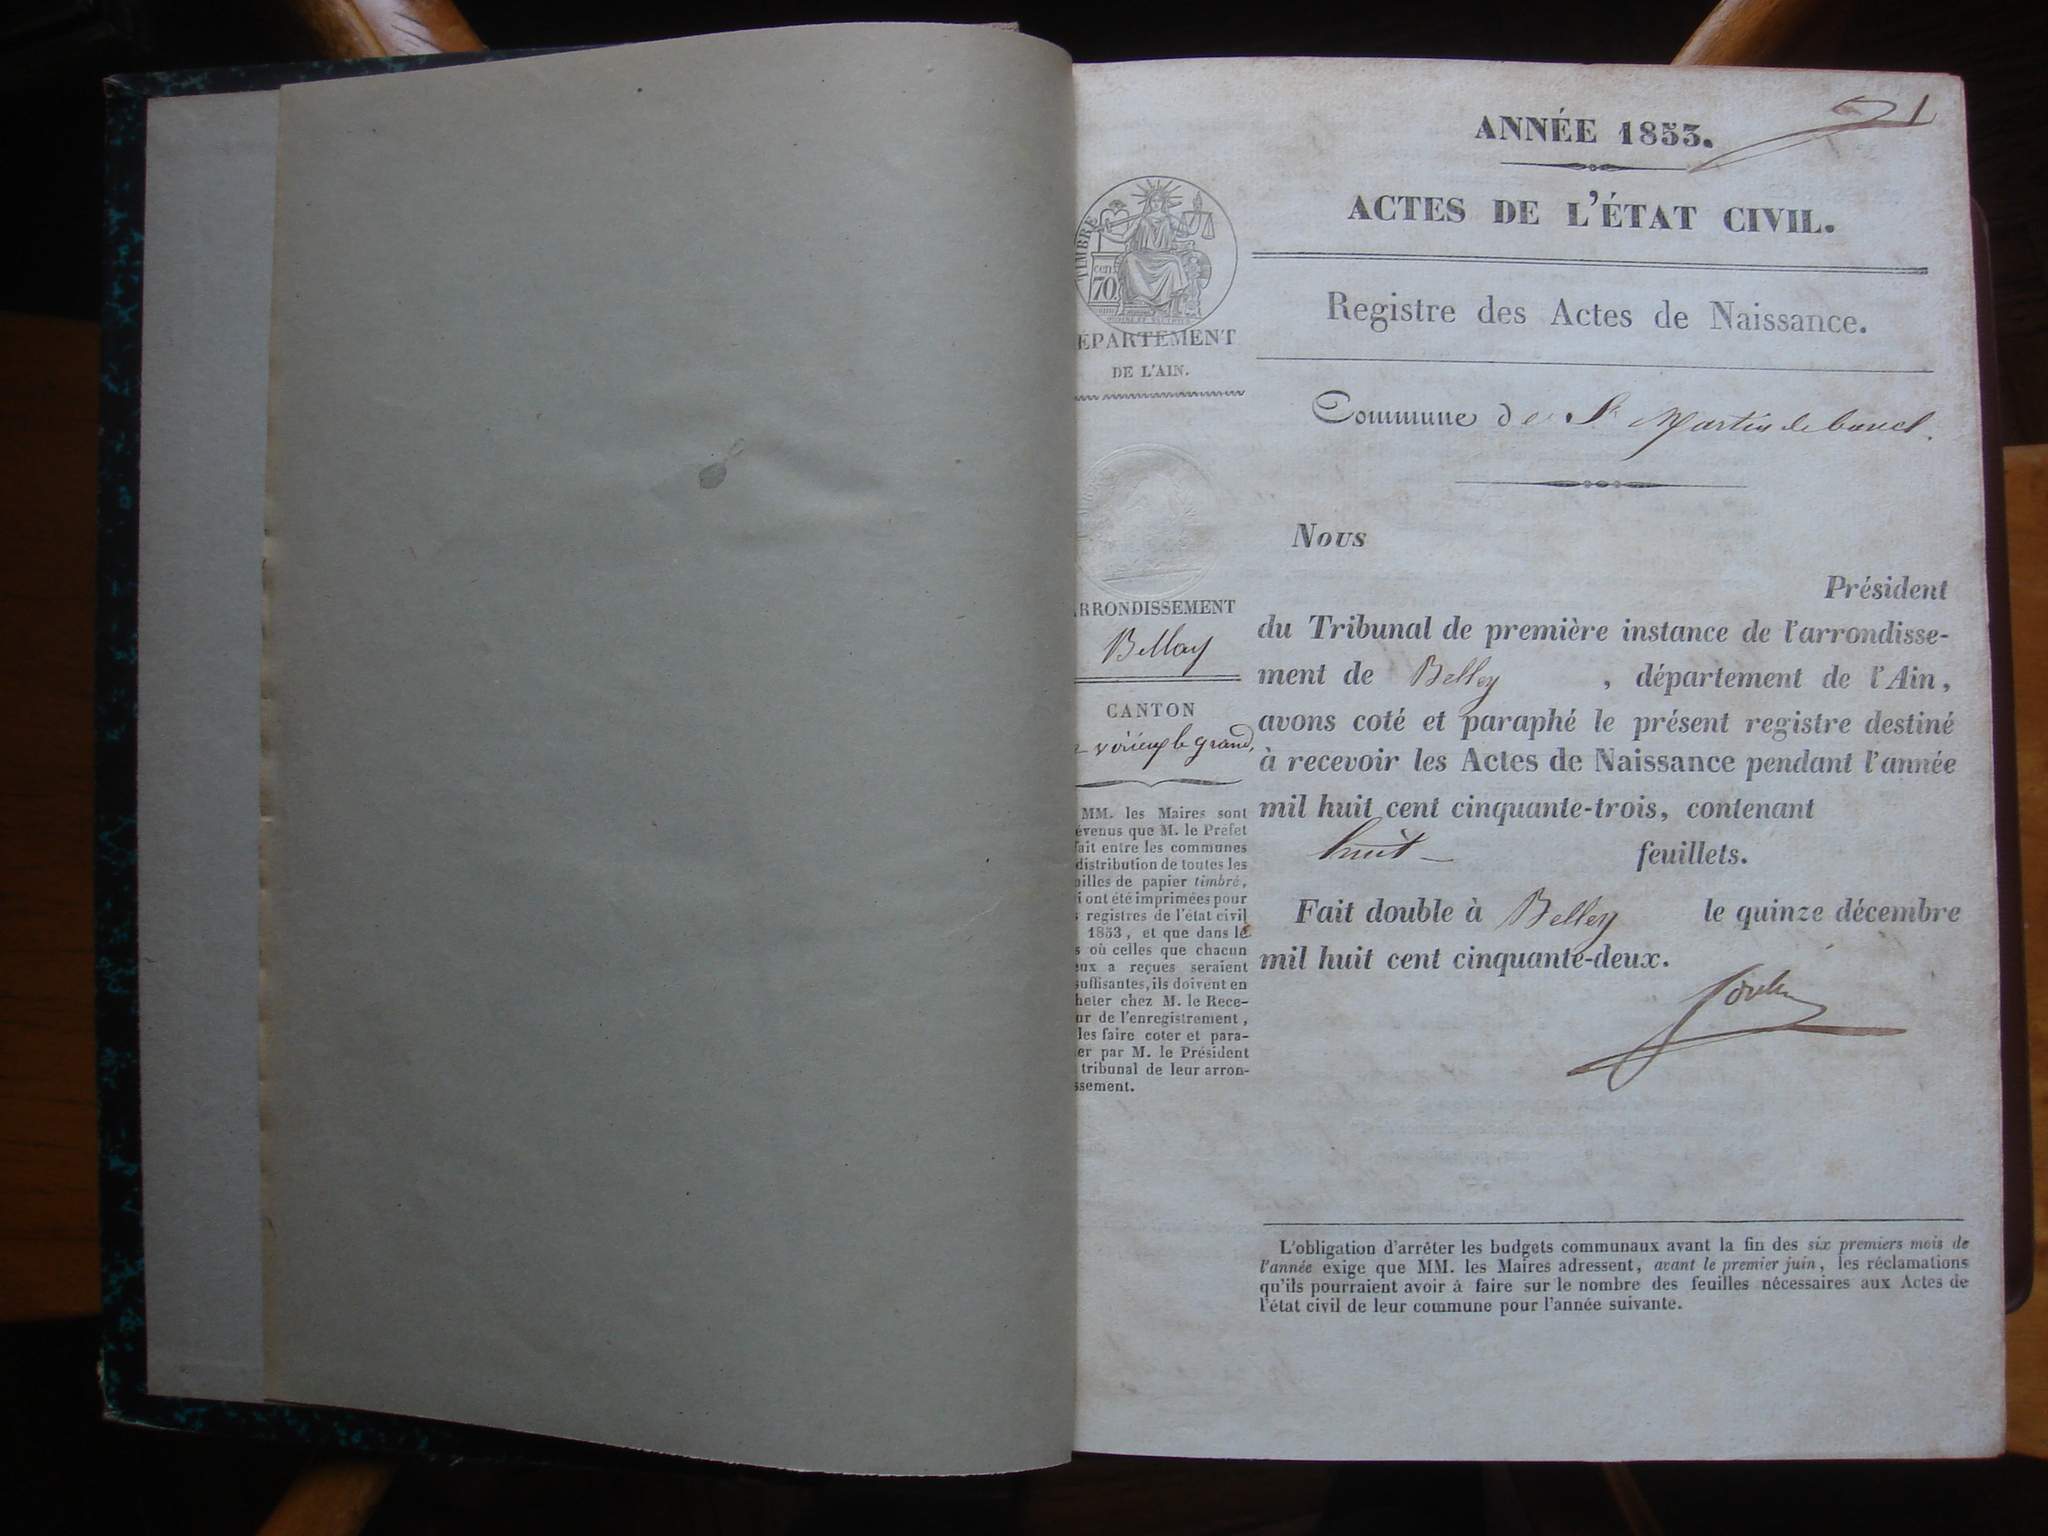 1
ANNÉE 1853.
ACTES DE L'ÉTAT CIVIL.
Registre des Actes de Naissance.
Commune de St Martin de bavel.
TIMBRE
cen
70.
ÉPARTEMENT
DE L'AIN.
RRONDISSEMENT
Belley
CANTON
virieu le grand,
MM. les Maires sont
évenus que M. le Préfet
fait entre les communes
distribution de toutes les
uilles de papier timbré,
i ont été imprimées pour
s registres de l'état civil
1853, et que dans le
s où celles que chacun
eux a reçues seraient
suffisantes, ils doivent en
heter chez M. le Rece-
ur de l'enregistrement,
les faire coter et para-
er par M. le Président
tribunal de leur arron-
ssement.
Nous
Président
du Tribunal de première instance de l'arrondisse-
ment de Belley , département de l'Ain,
avons coté et paraphé le présent registre destiné
à recevoir les Actes de Naissance pendant l'année
mil huit cent cinquante-trois, contenant
huit feuillets.
Fait double à Belley le quinze décembre
mil huit cent cinquante-deux.
L'obligation d'arrêter les budgets communaux avant la fin des six premiers mois de
l'année exige que MM. les Maires adressent, avant le premier juin, les réclamations
qu'ils pourraient avoir à faire sur le nombre des feuilles nécessaires aux Actes de
l'état civil de leur commune pour l'année suivante.